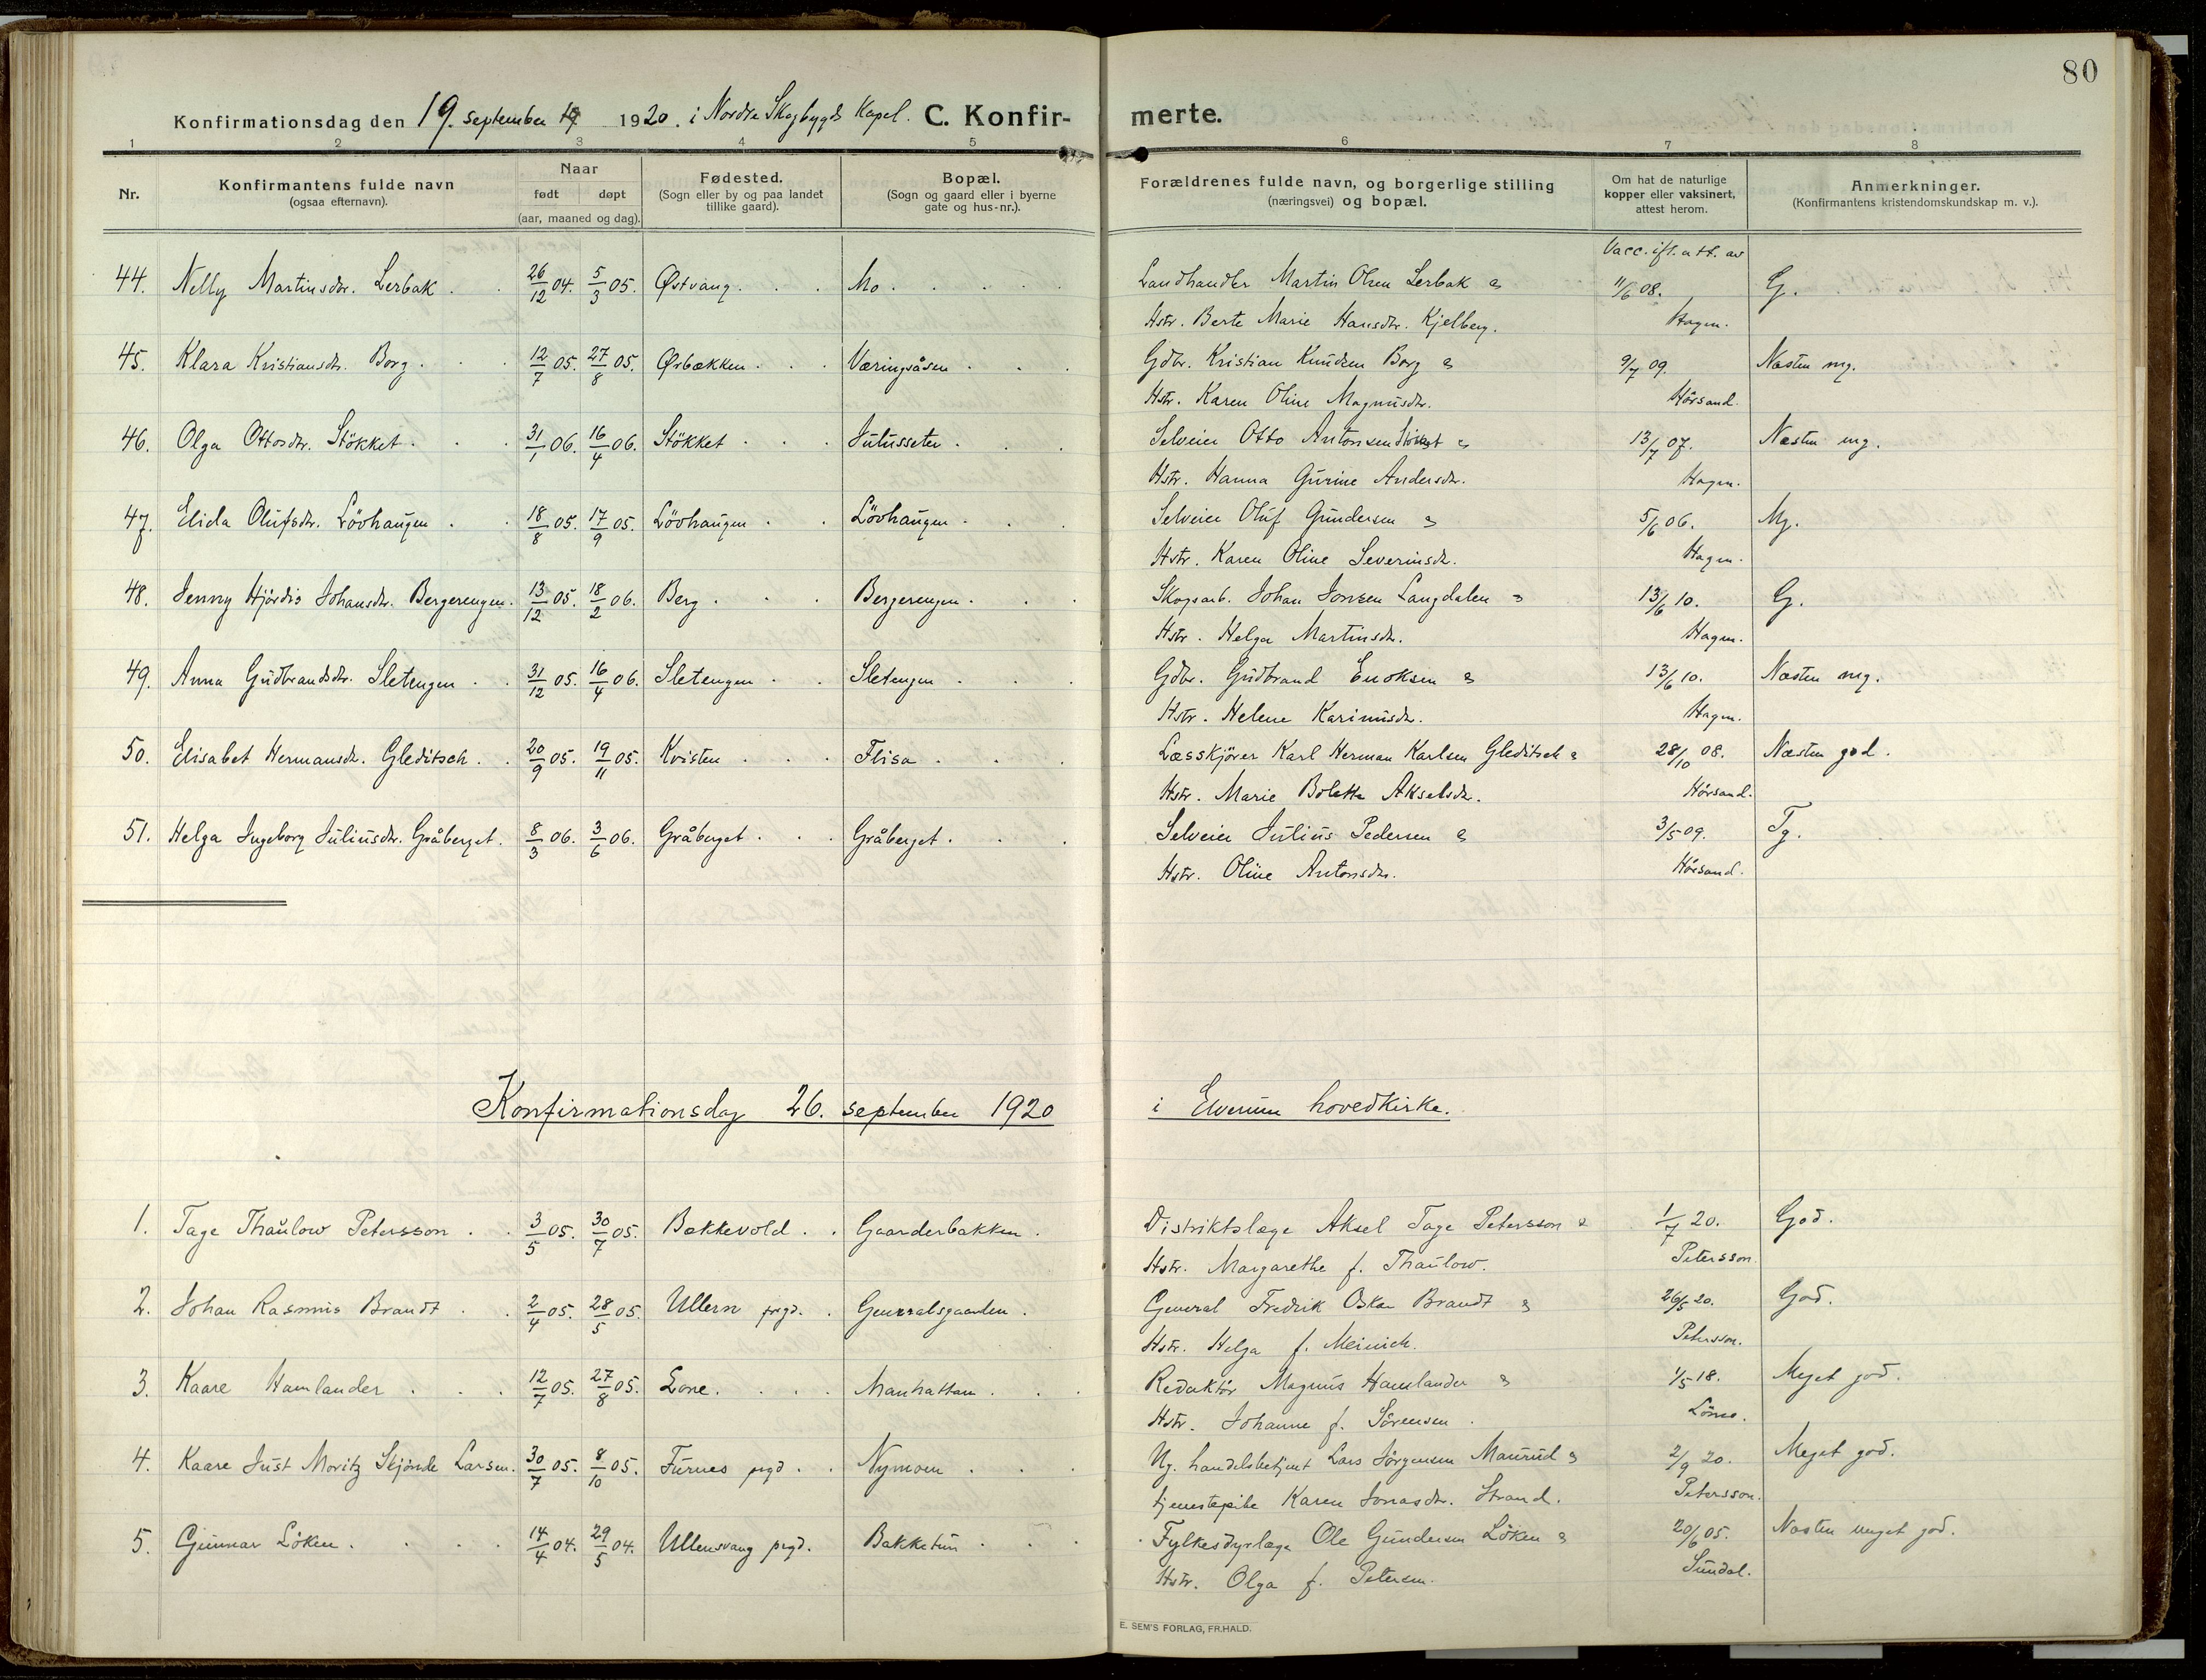 80
Konfirmationsdag den 19. september 1920. i Nordre Skogbygds Kapel. C. Konfir- merte.
1 2 3 4 5 6 7 8
Nr.
Konfirmantens fulde navn
(ogsaa efternavn).
Naar
født døpt
(aar, maaned og dag).
Fødested.
(Sogn eller by og paa landet
tillike gaard).
Bopæl.
(Sogn og gaard eller i byerne
gate og hus-nr.).
Forældrenes fulde navn, og borgerlige stilling
(næringsvei) og bopæl.
Om hat de naturlige
kopper eller vaksinert,
attest herom.
Anmerkninger.
(Konfirmantens kristendomskundskap m. v.).
Vacc. ifl. att. av
44. Nelly Martinsdtr. Lerbak 26/12 04. 5/3 05. Østvang. Mo. Landhandler Martin Olsen Lerbak & 11/6 08. G.
Hstr. Berte Marie Hansdtr. Kjelberg. Hagen.
45. Klara Kristiansdtr. Borg. 12/7 05. 27/8 05. Ørbækken. Væringsåsen. Gdbr. Kristian Knudsen Borg & 9/7 09. Næsten mg.
Hstr. Karen Oline Magnusdtr. Hårsand.
46. Olga Ottosdtr. Stökket. 31/1 06. 16/4 06. Stökket Julusseter. Selveier Otto Antonsen Stökket & 13/7 07. Næsten mg.
Hstr. Hanna Gurine Andersdtr. Hagen.
47. Elida Olufsdtr. Lövhaugen 18/8 05. 17/9 05. Lövhaugen Lövhaugen. Selveier Oluf Gundersen & 5/6 06. Mg.
Hstr. Karen Oline Severinsdtr. Hagen.
48. Jenny Hjördis Johansdtr. Bergerengen. 13/12 05. 18/2 06. Berg. Bergerengen. Skogsarb. Johan Jonsen Langdalen & 13/6 10. G.
Hstr. Helga Martinsdtr. Hagen.
49. Anna Gudbrandsdtr. Sletengen 31/12 05. 16/4 06. Sletengen Sletengen Gdbr. Gudbrand Enoksen & 13/6 10. Næsten mg.
Hstr. Helene Karinusdtr. Hagen.
50. Elisabet Hermansdtr. Gleditsch. 20/9 05. 19/11 05. Kvisten Flisa. Læsskjörer Karl Herman Karlsen Gleditsch & 28/10 08. Næsten god.
Hstr. Marie Bolette Akselsdtr. Hårsand.
51. Helga Ingeborg Juliusdtr. Gråberget. 8/3 06. 3/6 06. Gråberget Gråberget. Selveier Julius Pedersen & 3/5 09. Tg.
Hstr. Oline Antonsdtr. Hårsand.
Konfirmationsdag 26. september 1920 i Elverum hovedkirke.
1. Tage Thaulow Petersson 3/5 05. 30/7 05. Bakkevold. Gaarderbakken. Distriktslæge Aksel Tage Petersson & 1/7 20. God.
Hstr. Margarethe f. Thaulow. Petersson.
2. Johan Rasmus Brandt 2/4 05. 28/5 05. Ullern prgd. Generalsgaarden. General Fredrik Oskar Brandt & 26/5 20. God.
Hstr. Helga f. Meinich. Petersson.
3. Kaare Hamlander 12/7 05. 27/8 05. Lone. Manhattan. Redaktör Magnus Hamlander & 1/5 18. Meget god.
Hstr. Johanne f. Sörensen.
4. Kaare Just Moritz Skjönde Larsen. 30/7 05. 8/10 05. Furnes prgd. Nymoen Ug. handelsbetjent Lars Jörgensen Maurud & 2/9 20. Meget god.
tjenestepike Karen Jonasdtr. Strand. Petersson.
5. Gunnar Löken. 14/4 04. 29/5 04. Ullensvang prgd. Bakketun Fylkesdyrlæge Ole Gundersen Löken & 20/6 05. Næsten meget god.
Hstr. Olga f. Petersen. Sundal.
E. SEM'S FORLAG, FR.HALD.